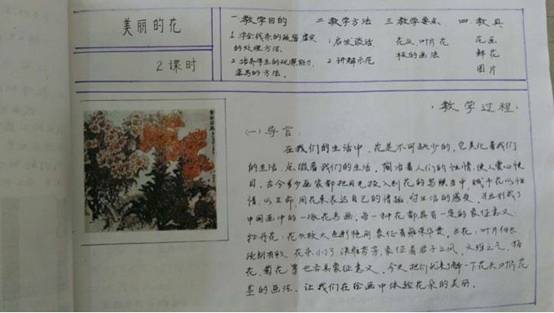 美丽的花
2课时
一 教学目的
1.学会线条的疏密、虚实
的处理方法。
2.培养学生的观察能力,
写的方法。
二 教学方法
1.启发谈话
2.讲解示范
三 教学要点
花头、叶片、花
枝的画法
四 教具
花画
鲜花
图片
教学过程:
(一) 导言:
在我们的生活中,花是不可缺少的,它美化着我们
的生活,点缀着我们的生活。陶冶着人们的性情,使人赏心悦
目。古今多少画家都把目光投入到花的
以花,用花来表达自己的情趣,对生活的感受,并且形成了
中国画中的一派花鸟画,每一种花都具有一定的象征意义,
牡丹花:花头较大色彩艳丽象征着雍华贵。兰花:叶片细长
花朵小巧、清雅芳芳,象征着君子之风,文雅之气,梅
花、菊花等也各具象征意义,今天我们就来了解一下花头叶片花
茎的画法,让我们在绘画中体验花朵的美丽。